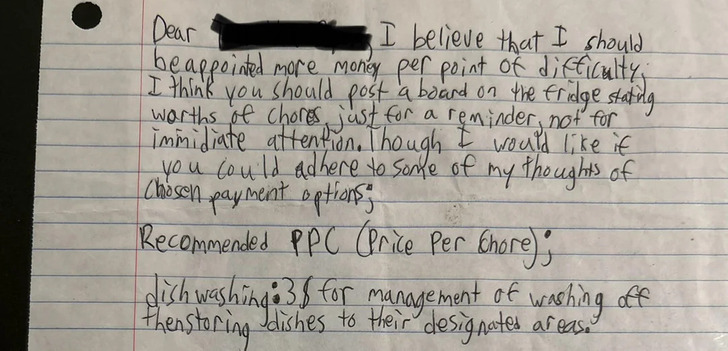 Dear , I believe that I should
be appointed more money per point of difficulty;
I think you should post a board on the fridge stating
worths of chores, just for a reminder, not for
immidiate attention. Though I would like if
you could adhere to some of my thoughts of
chosen payment options;
Recommended PPC (Price Per Chore);
dish washing: 3$ for management of washing off
then storing dishes to their designated areas.